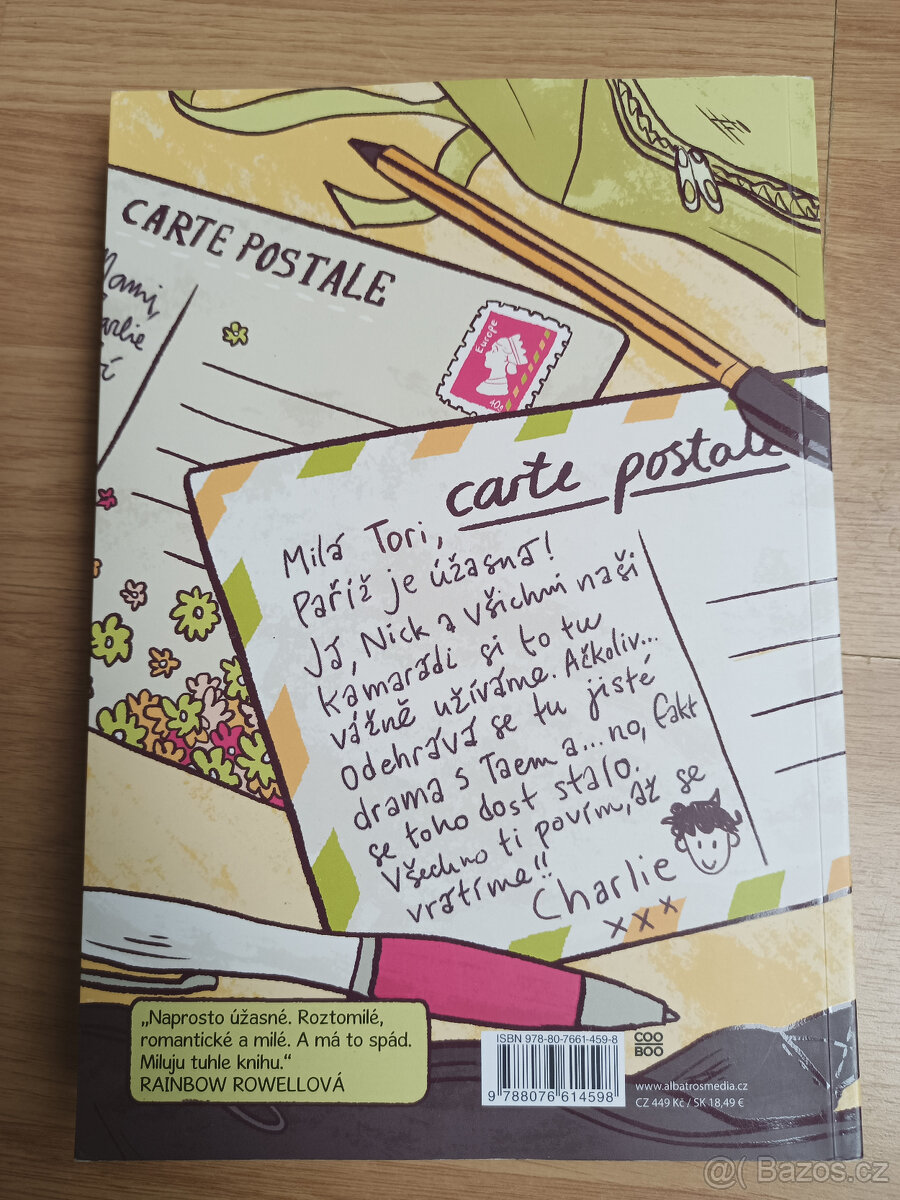 CARTE POSTALE
Mami,
Europe
carte postale
Milá Tori,
Paříž je úžasná!
Já, Nick a všichni naši
kamarádi si to tu
vážně užíváme. Ačkoliv...
odehrává se tu jisté
drama s Taem a...no, fakt
se toho dost stalo.
Všechno ti povím, až se
vrátíme!!
Charlie
xxx
„Naprosto úžasné. Roztomilé,
romantické a milé. A má to spád.
Miluju tuhle knihu.“
RAINBOW ROWELLOVÁ
ISBN 978-80-7661-459-8
9 788076 614598
COO
BOO
www.albatrosmedia.cz
CZ 449 Kč / SK 18,49 €
@( Bazos.cz